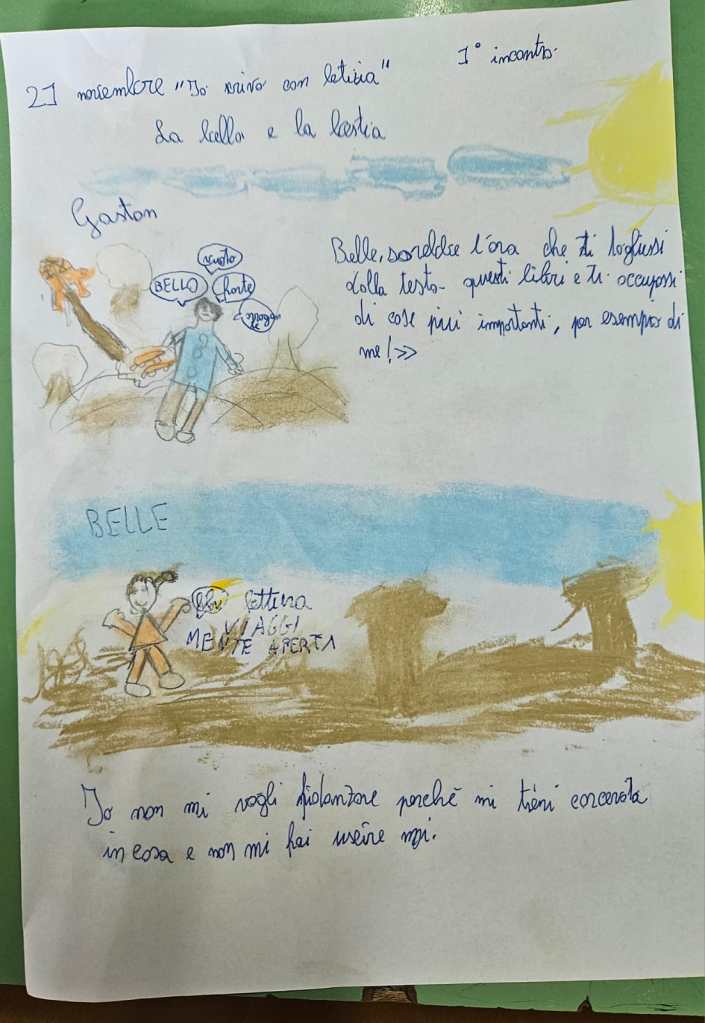 21 novembre "Io scrivo con letizia" 1° incontro.
La bella e la bestia
Gaston
vuoto
BELLO
forte
Belle, sarebbe l'ora che ti togliessi
dalla testa questi libri e ti occupassi
di cose più importanti, per esempio di
me!>>
BELLE
lettura
VIAGGI
MENTE APERTA
Io non mi vogli fidanzare perchè mi tieni carcerata
in casa e non mi fai uscire mai.